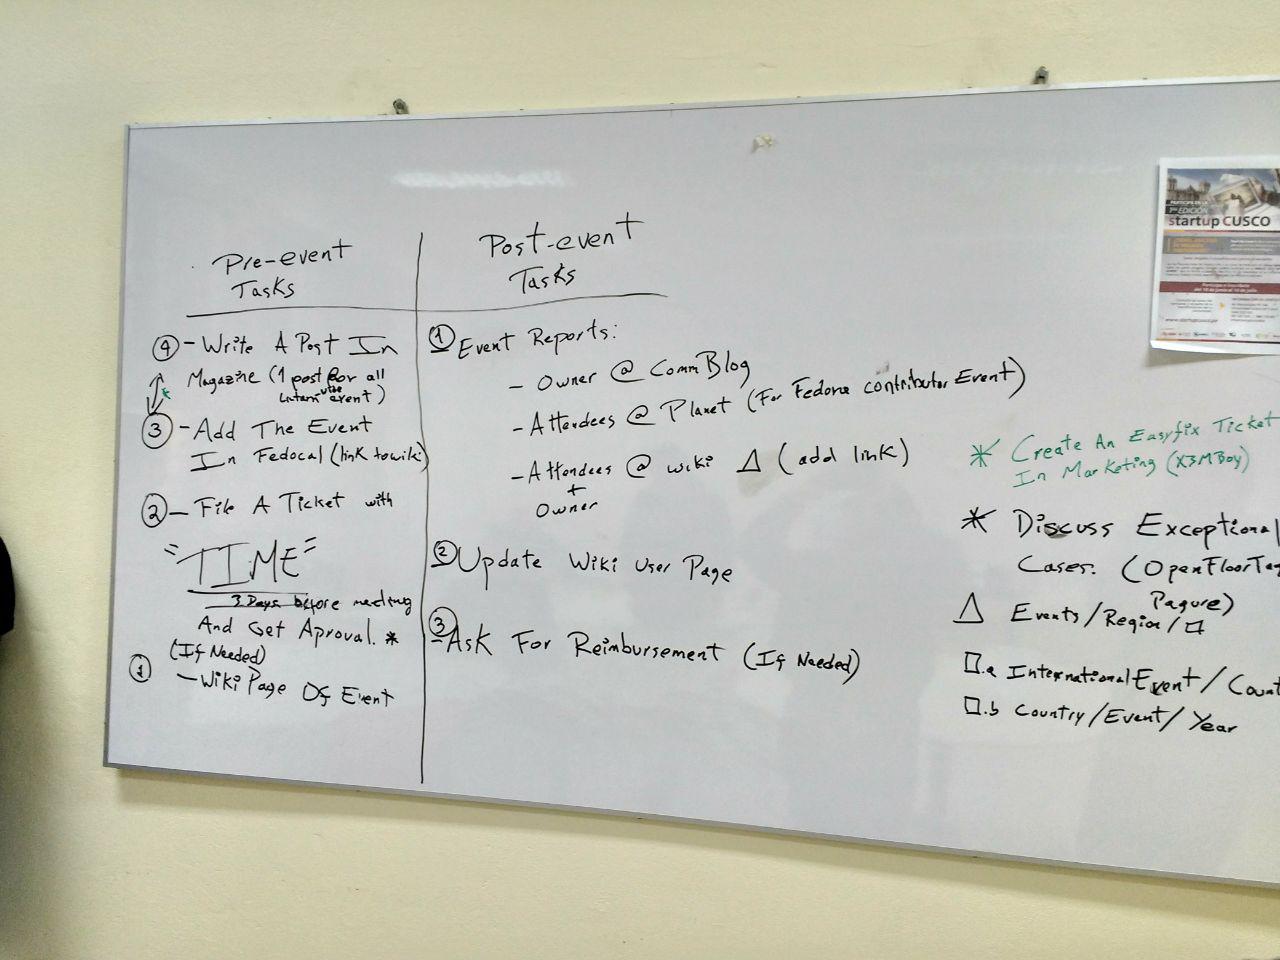 Pre-event
Tasks
④ - Write A Post In
Magazine (1 post for all
the
Latam event)
③ - Add The Event
In Fedocal (link to wiki)
② - File A Ticket with
"TIME"
3 Days before meeting
And Get Aproval. *
(If Needed)
① - Wiki Page Of Event
Post-event
Tasks
① Event Reports:
- Owner @ CommBlog
- Attendees @ Planet (For Fedora contributor Event)
- Attendees @ wiki △ (add link)
+
Owner
② Update Wiki User Page
③ Ask For Reimbursement (If Needed)
* Create An Easyfix Ticket
In Marketing (X3MBoy)
* Discuss Exceptional
Cases. (OpenFloorTag
Pagure)
△ Events/Region/□
□.a International Event/Count
□.b Country/Event/Year
PARTICIPE EN LA
1ra EDICIÓN
startup CUSCO